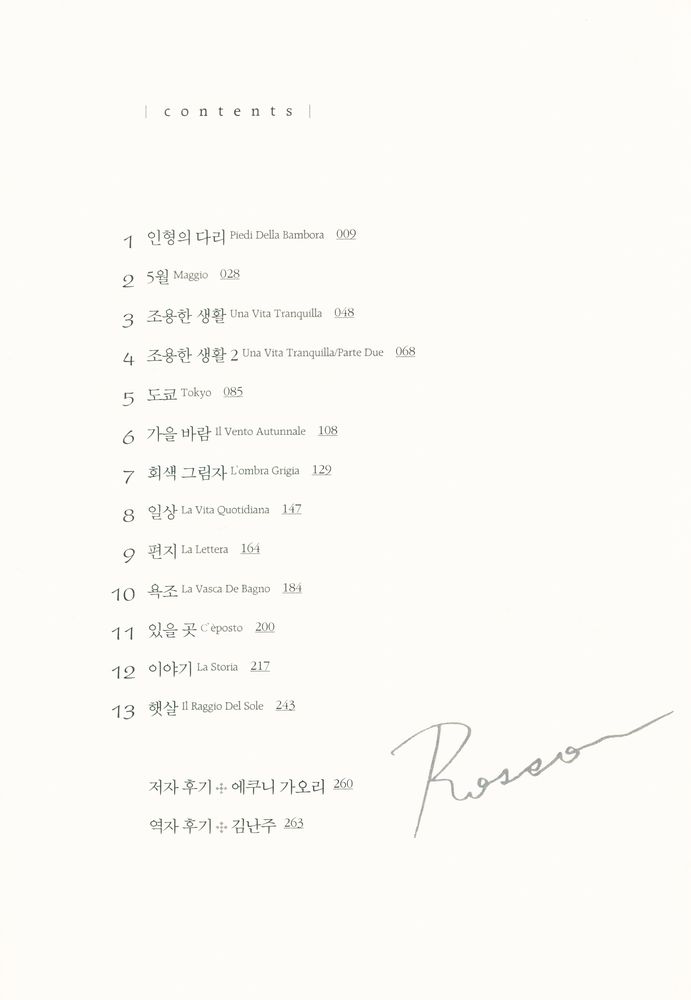 | contents |
1 인형의 다리 Piedi Della Bambora 009
2 5월 Maggio 028
3 조용한 생활 Una Vita Tranquilla 048
4 조용한 생활 2 Una Vita Tranquilla/Parte Due 068
5 도쿄 Tokyo 085
6 가을 바람 Il Vento Autunnale 108
7 회색 그림자 L'ombra Grigia 129
8 일상 La Vita Quotidiana 147
9 편지 La Lettera 164
10 욕조 La Vasca De Bagno 184
11 있을 곳 C'èposto 200
12 이야기 La Storia 217
13 햇살 Il Raggio Del Sole 243
Rosso
저자 후기 ༶ 에쿠니 가오리 260
역자 후기 ༶ 김난주 263